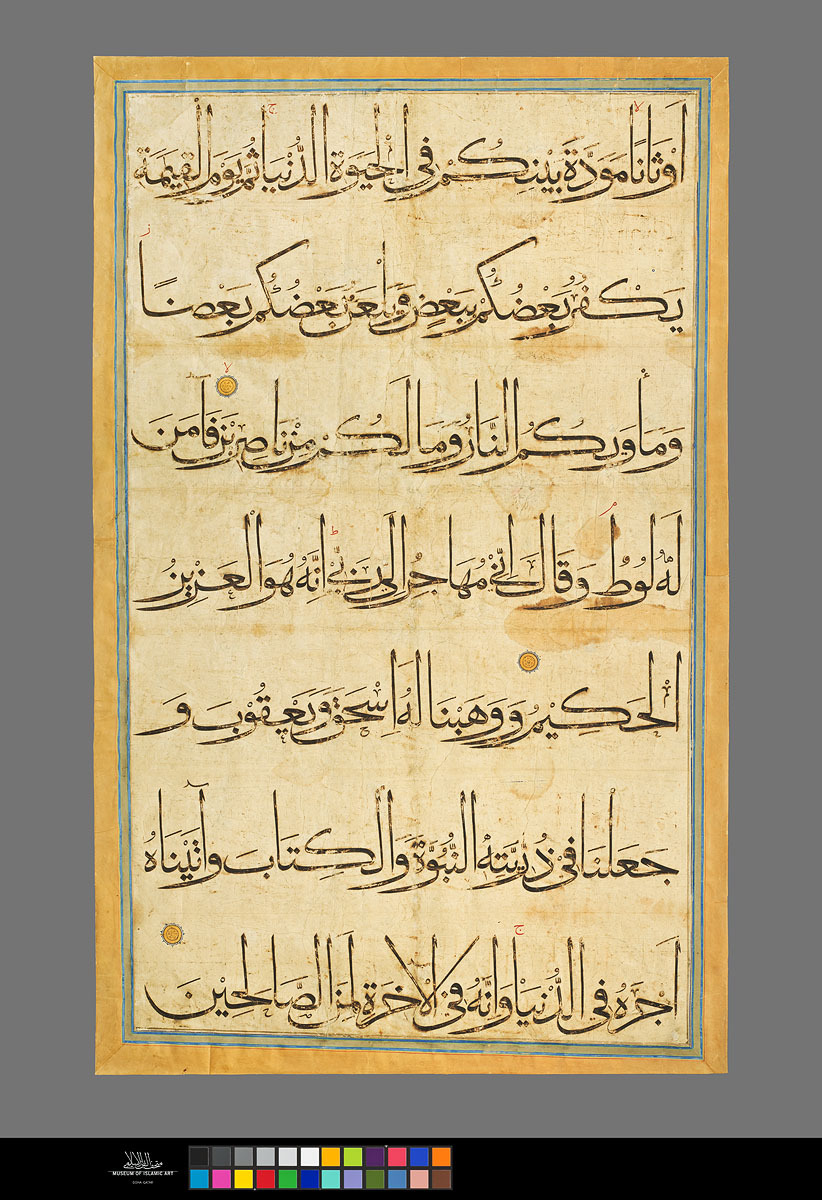 اَوْثَانًا مَوَدَّةَ بَيْنِكُمْ فِى الْحَيَوةِ الدُّنْيَا ثُمَّ يَوْمَ الْقِيٰمَةِ
يَكْفُرُ بَعْضُكُمْ بِبَعْضٍ وَيَلْعَنُ بَعْضُكُمْ بَعْضًا
وَمَأْوٰيكُمُ النَّارُ وَمَا لَكُمْ مِنْ نَاصِرِينَ فَاٰمَنَ
لَهُ لُوطٌ وَقَالَ اِنِّى مُهَاجِرٌ اِلٰى رَبِّى اِنَّهُ هُوَ الْعَزِيزُ
الْحَكِيمُ وَوَهَبْنَا لَهُ اِسْحٰقَ وَيَعْقُوبَ وَ
جَعَلْنَا فِى ذُرِّيَّتِهِ النُّبُوَّةَ وَالْكِتَابَ وَآتَيْنَاهُ
اَجْرَهُ فِى الدُّنْيَا وَاِنَّهُ فِى الْاٰخِرَةِ لَمِنَ الصَّالِحِينَ
متحف الفن الإسلامي
MUSEUM OF ISLAMIC ART
DOHA QATAR